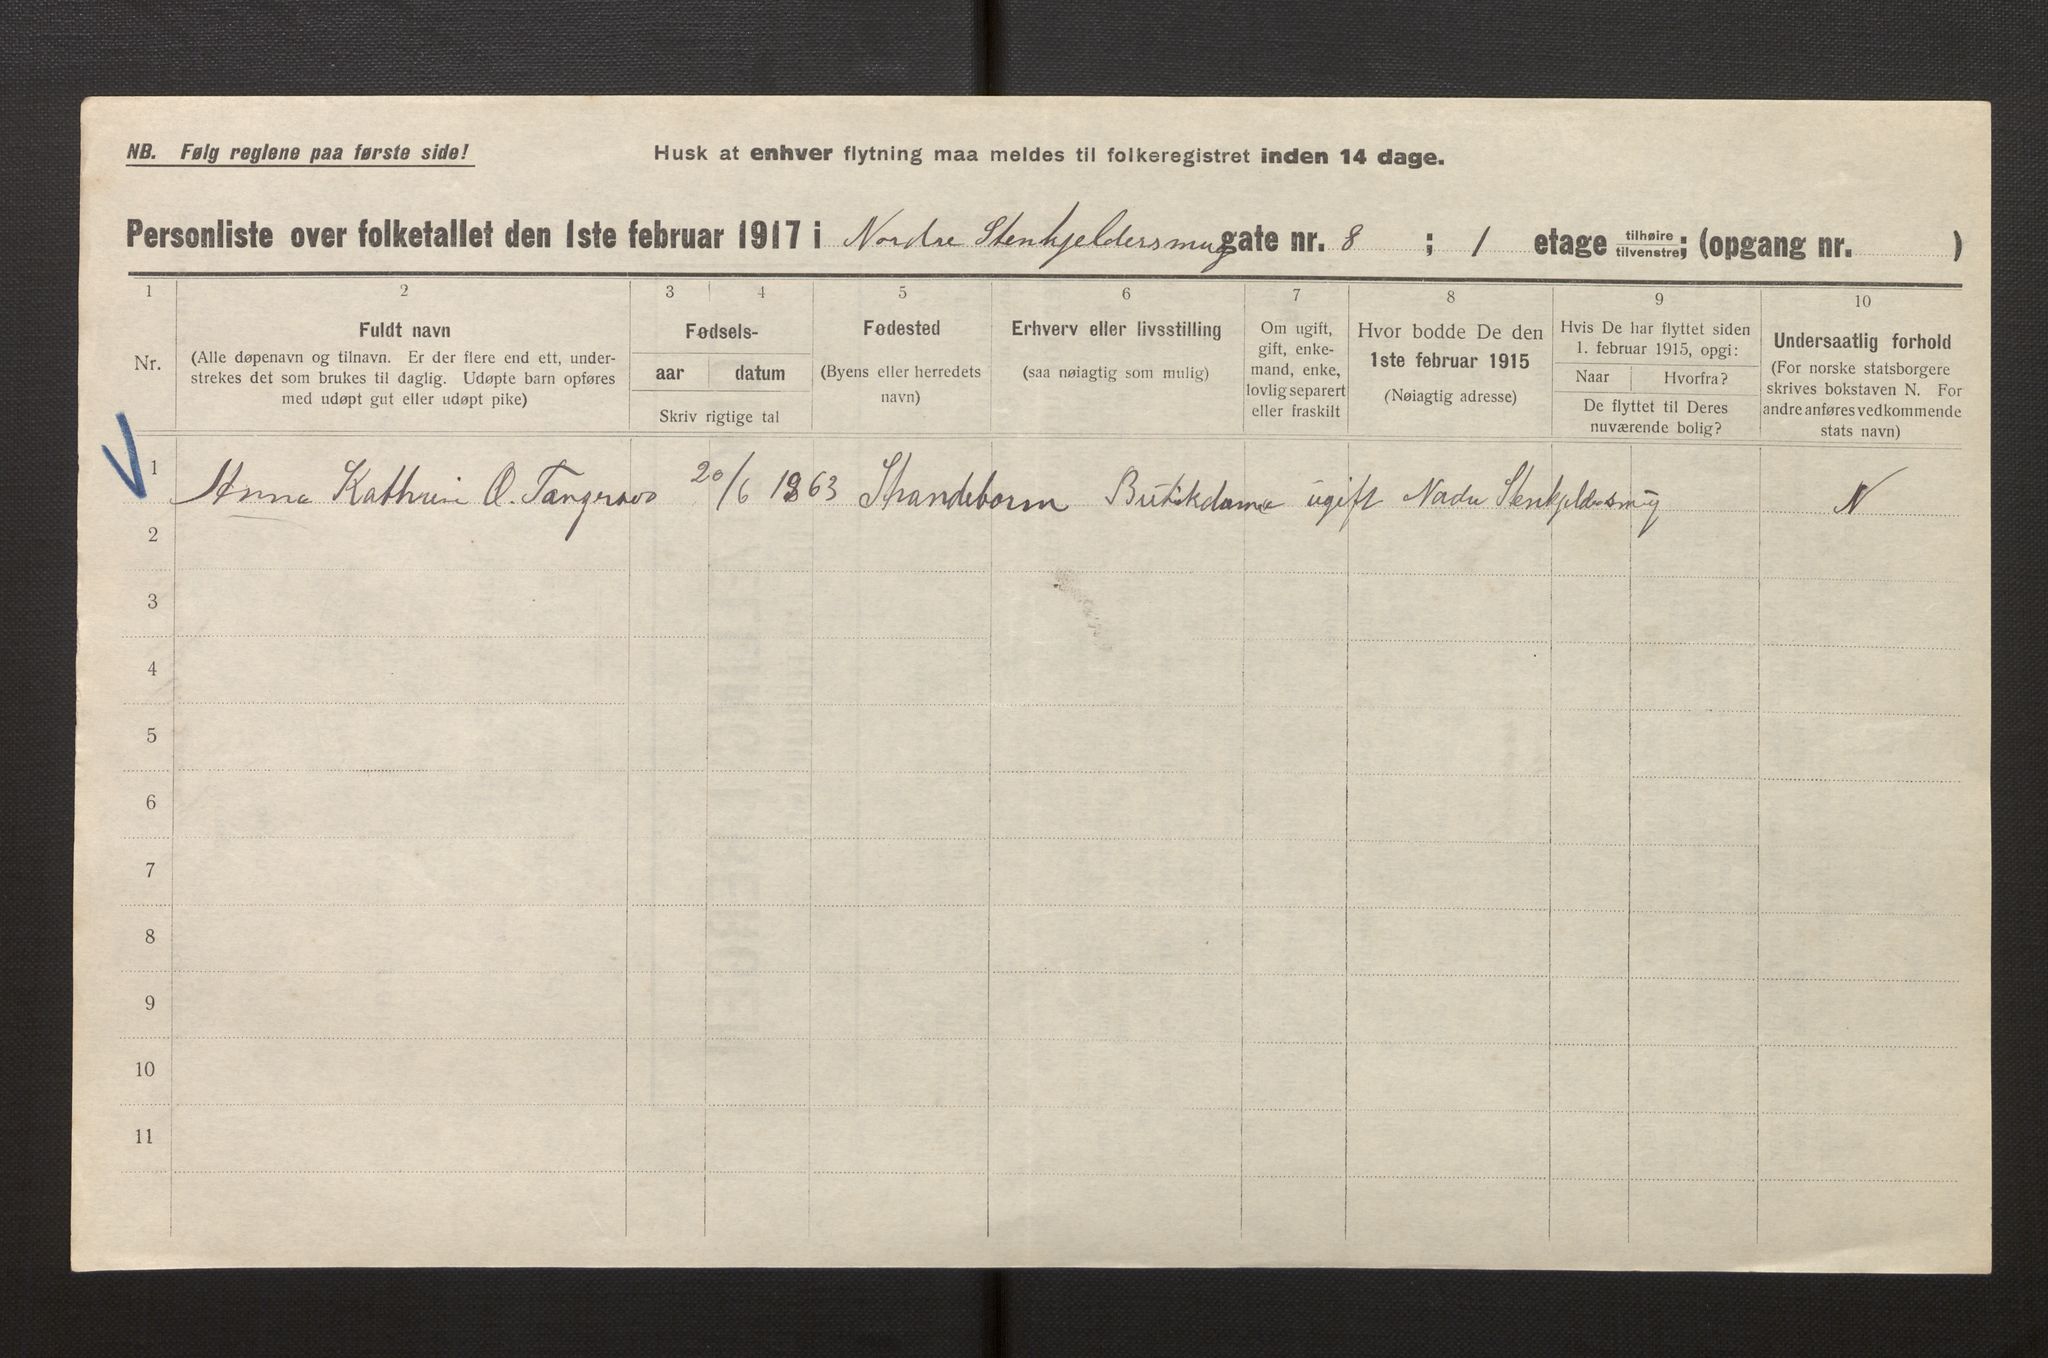 NB. Følg reglene paa første side!
Husk at enhver flytning maa meldes til folkeregistret inden 14 dage.
Personliste over folketallet den 1ste februar 1917 i Nordre Stenkjeldersmug gate nr. 8 ; 1 etage tilhøire tilvenstre; (opgang nr. )
1 2 3 4 5 6 7 8 9 10
Nr.
Fuldt navn
(Alle døpenavn og tilnavn. Er der flere end ett, under-
strekes det som brukes til daglig. Udøpte barn opføres
med udøpt gut eller udøpt pike)
Fødsels-
aar datum
Skriv rigtige tal
Fødested
(Byens eller herredets
navn)
Erhverv eller livsstilling
(saa nøiagtig som mulig)
Om ugift,
gift, enke-
mand, enke,
lovlig separert
eller fraskilt
Hvor bodde De den
1ste februar 1915
(Nøiagtig adresse)
Hvis De har flyttet siden
1. februar 1915, opgi:
Naar Hvorfra?
De flyttet til Deres
nuværende bolig?
Undersaatlig forhold
(For norske statsborgere
skrives bokstaven N. For
andre anføres vedkommende
stats navn)
1 Anna Kathrine O. 20/6 1863 Strandebarm Butikdame ugift Nordre Stenkjeldersmug N
2
3
4
5
6
7
8
9
10
11